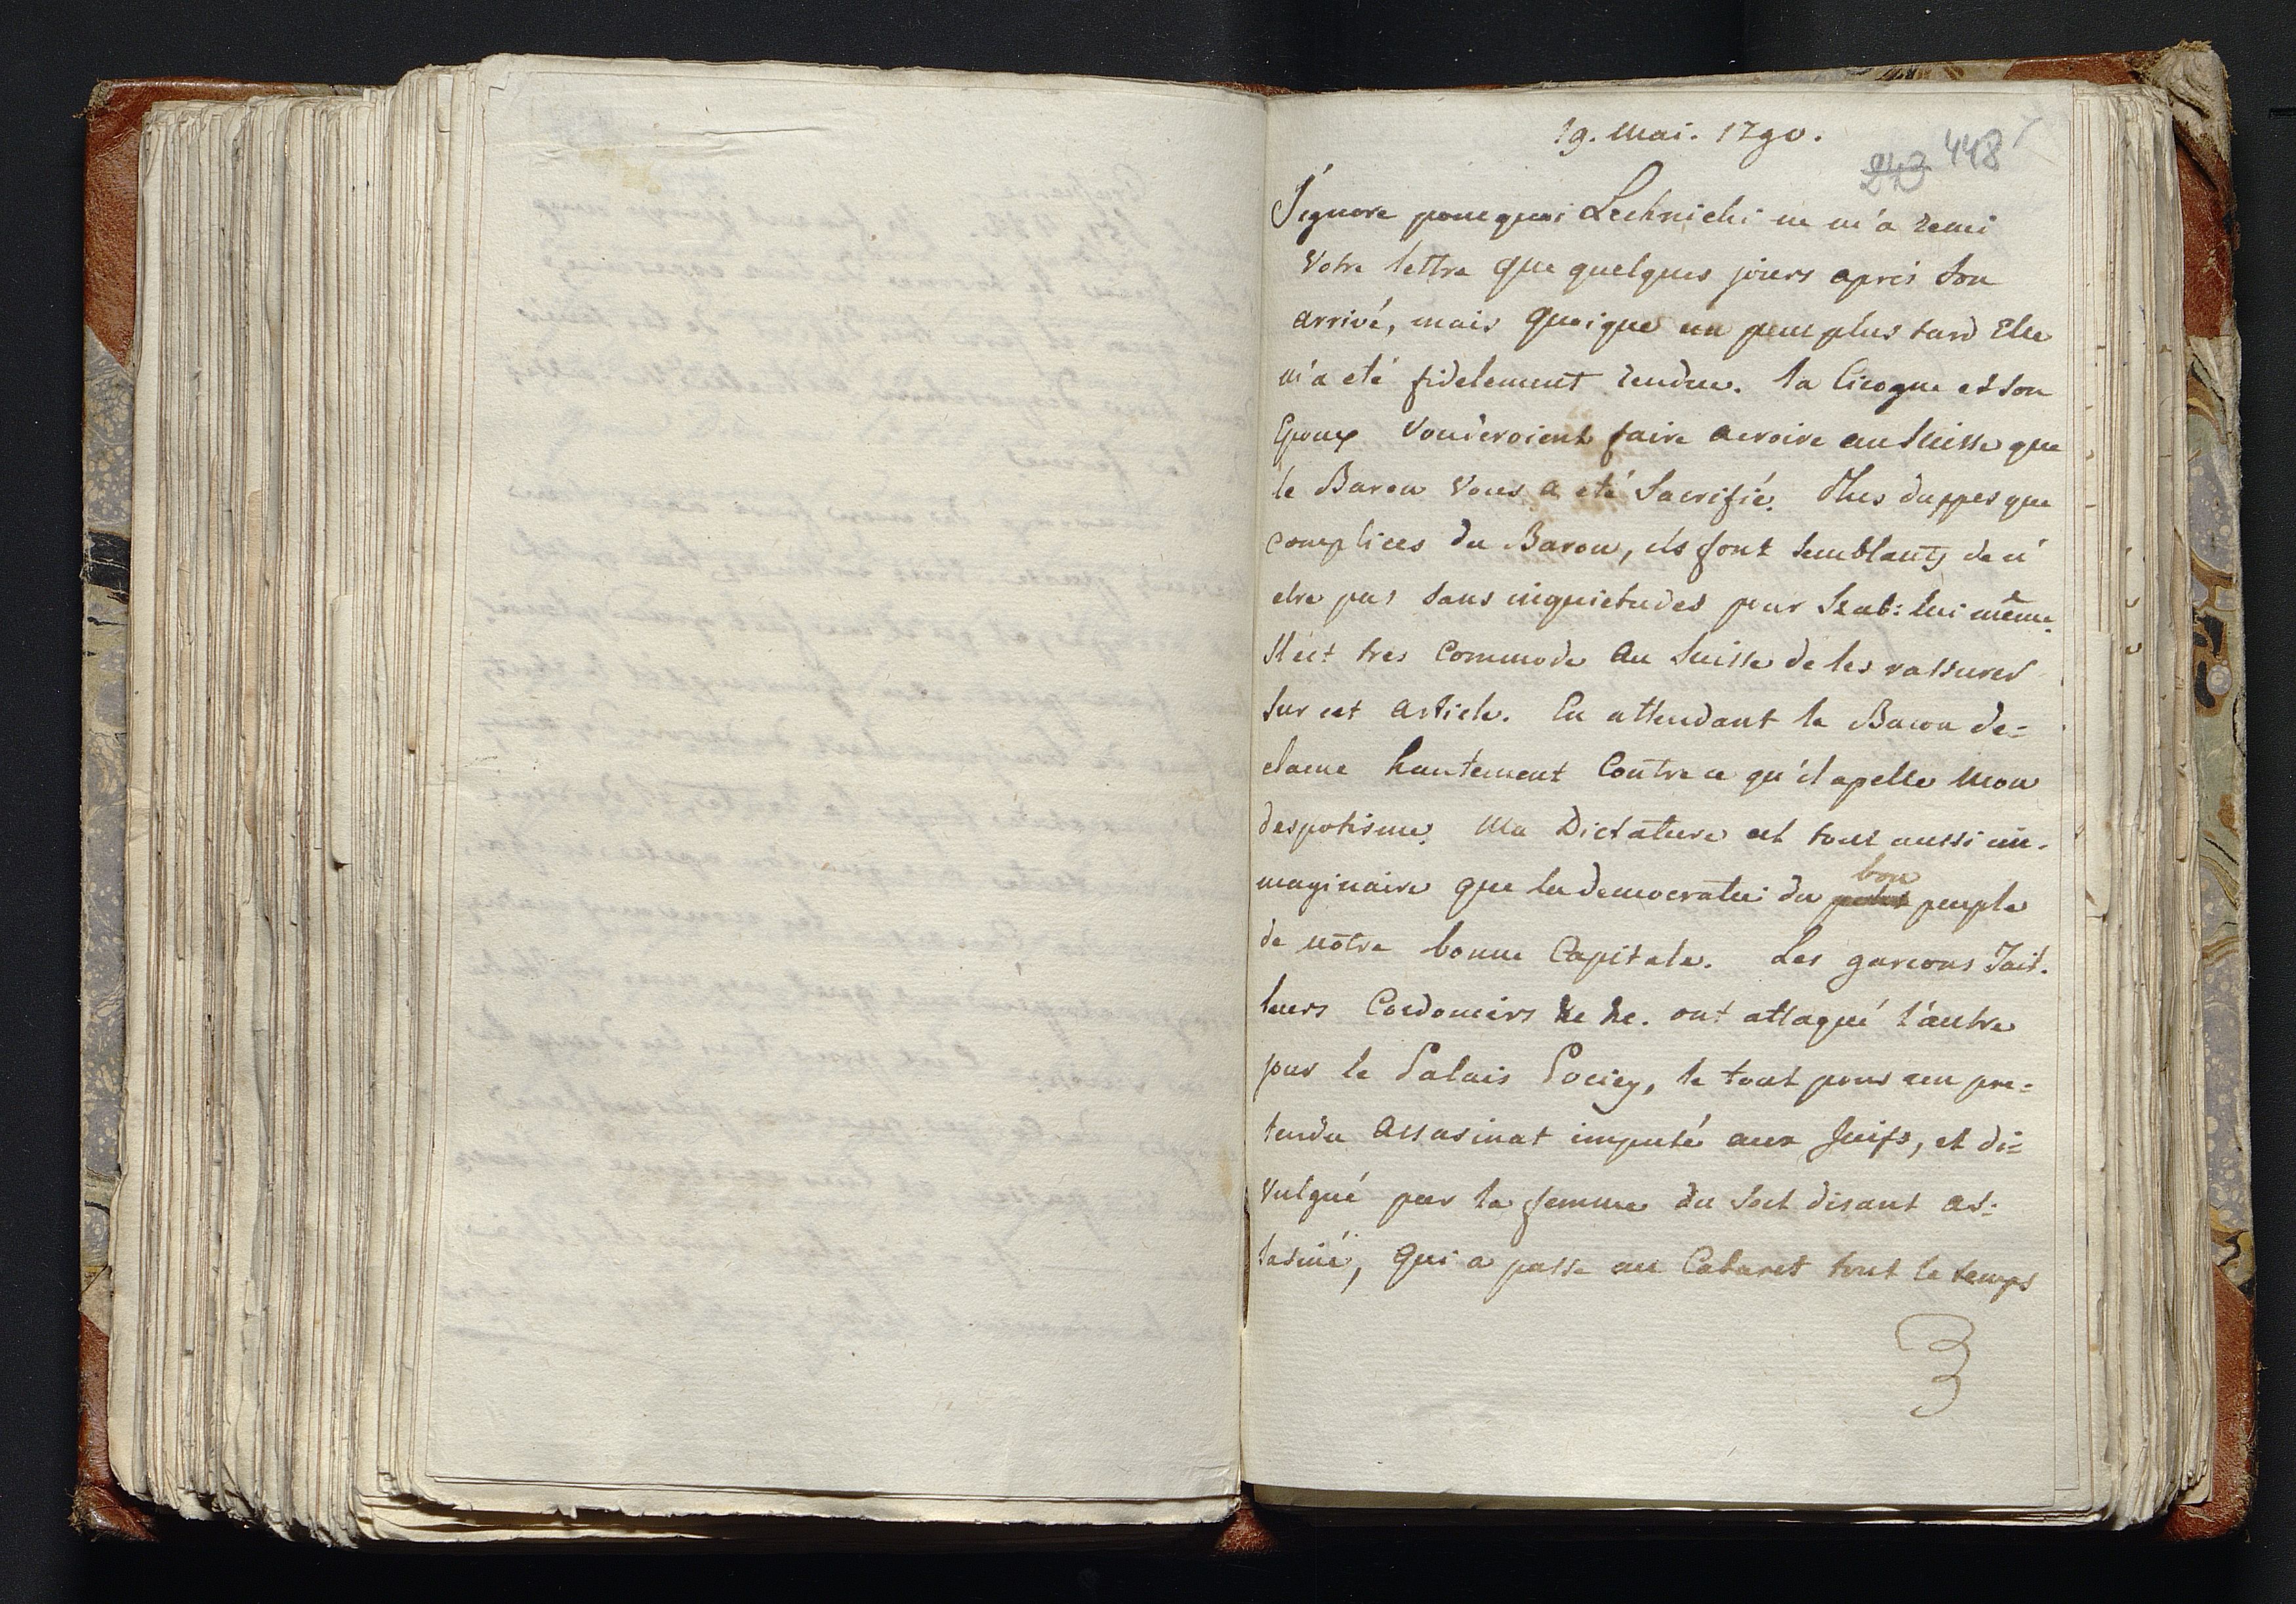 19. Mai. 1790.
243 448
J'ignore pourquoi Lechnicki ne m'a remi
Votre lettre que quelques jours après son
arrivé, mais quoique un peu plus tard Elle
m'a eté fidelement rendue. la Cicogne et son
Epoux vouderoient faire acroire au Suisse que
le Baron vous a eté sacrifié. Plus duppes que
complices du Baron, ils font semblants de n'
etre pas sans inquietudes pour Szab: lui même.
Il est tres commode au Suisse de les rassurer
sur cet article. En attendant le Baron de=
clame hautement contre ce qu'il apelle mon
despotisme. Ma Dictature est tout aussi im-
maginaire que la democratie du bon peuple
de nôtre bonne Capitale. Les garcons Tail-
leurs Cordoniers &c &c. ont attaqué l'autre
jour le Palais Pociey, le tout pour un pre=
tendu assasinat imputé aux Juifs, et di=
vulgué par la femme du soit disant as=
sasiné, qui a passe au Cabaret tout le temps